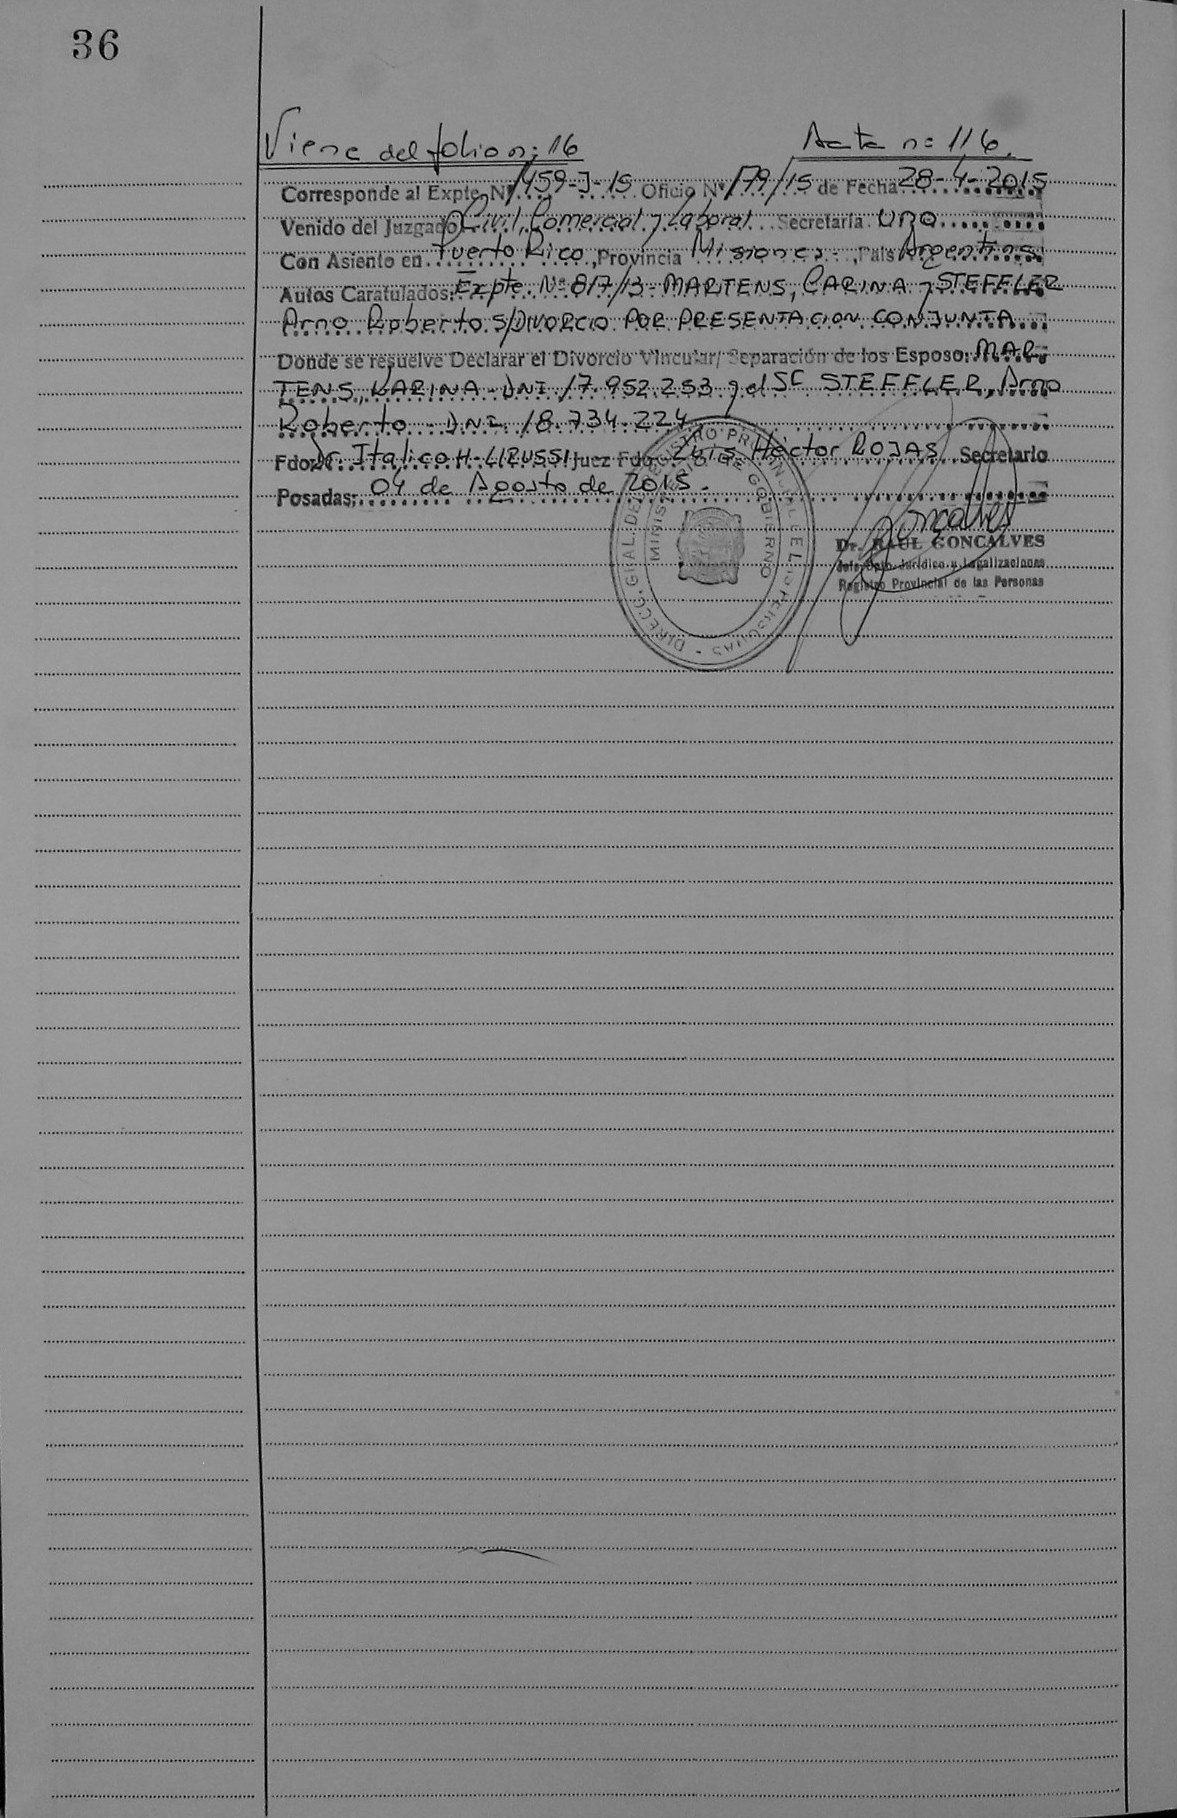 36
Viene del folio n: 16
Acta n: 116.
Corresponde al Expte. Nº 1459-J-15 Oficio Nº 179/15 de Fecha 28-4-2015
Venido del Juzgado Civil, Comercial y Laboral Secretaría UNO
Con Asiento en Puerto Rico, Provincia Misiones, País Argentina
Autos Caratulados: Expte. Nº 817/13 - MARTENS, CARINA y STEFFLER
Arno Roberto S/DIVORCIO POR PRESENTACION CONJUNTA
Donde se resuelve Declarar el Divorcio Vincular/ Separación de los Esposo: MAR-
TENS, KARINA - DNI 17.952.253 y el Sr STEFFLER, Arno
Roberto - DNI 18.734.224
Fdo: Dr. Italico H. LIRUSSI Juez Fdo. Luis Héctor ROJAS Secretario
Posadas: 04 de Agosto de 2015.
DIRECC. GRAL. DEL REGISTRO PROVINCIAL DE LAS PERSONAS
MINISTERIO DE GOBIERNO
Dr. RAUL GONCALVES
Jefe Dpto. Jurídico y Legalizaciones
Registro Provincial de las Personas